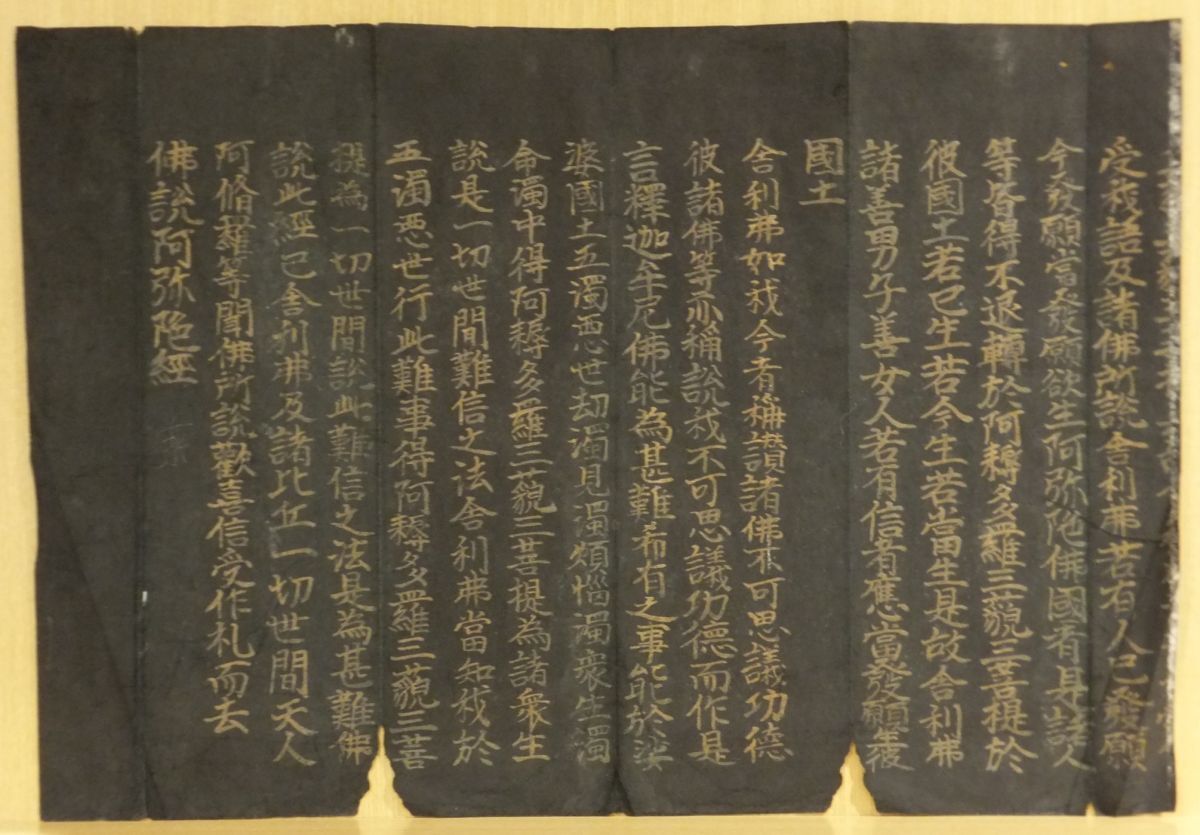 受我語及諸佛所說舍利弗若有人已發願
今發願當發願欲生阿弥陀佛國者是諸人
等皆得不退轉於阿耨多羅三藐三菩提於
彼國土若已生若今生若當生是故舍利弗
諸善男子善女人若有信者應當發願生彼
國土
舍利弗如我今者稱讃諸佛不可思議功德
彼諸佛等亦稱說我不可思議功德而作是
言釋迦牟尼佛能為甚難希有之事能於娑
婆國土五濁恶世劫濁見濁煩惱濁衆生濁
命濁中得阿耨多羅三藐三菩提為諸衆生
說是一切世間難信之法舍利弗當知我於
五濁恶世行此難事得阿耨多羅三藐三菩
提為一切世間說此難信之法是為甚難佛
說此經已舍利弗及諸比丘一切世間天人
阿脩羅等聞佛所說歡喜信受作礼而去
佛說阿弥陀經